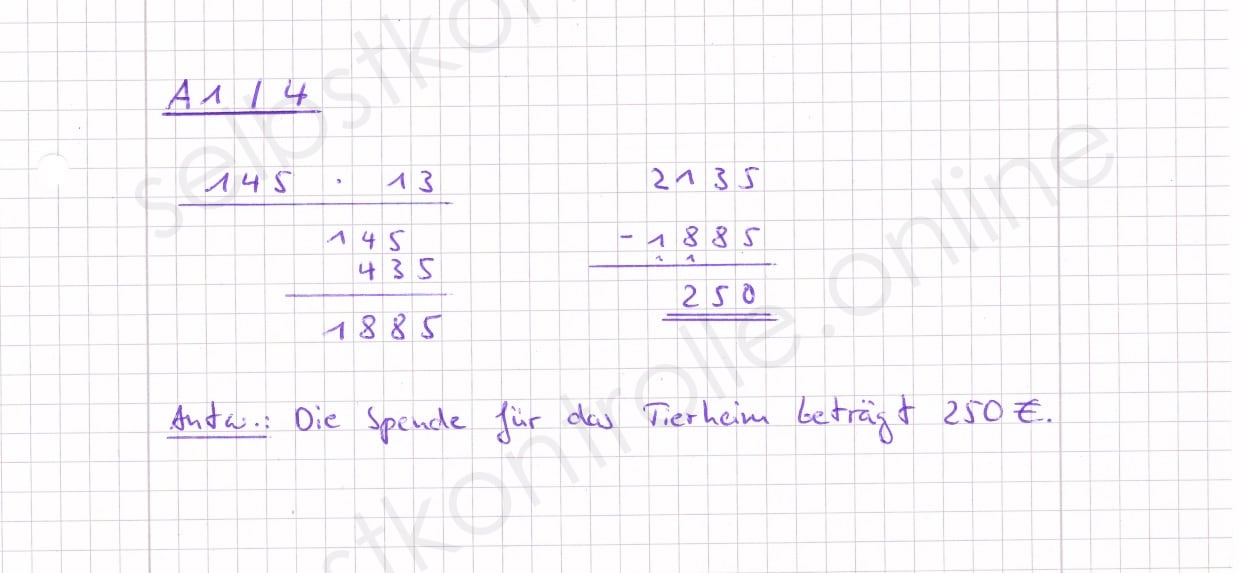 A1 / 4
145 · 13
145
435
1885
2135
- 1885
1 1
250
Antw.: Die Spende für das Tierheim beträgt 250 €.
selbstkontrolle.online